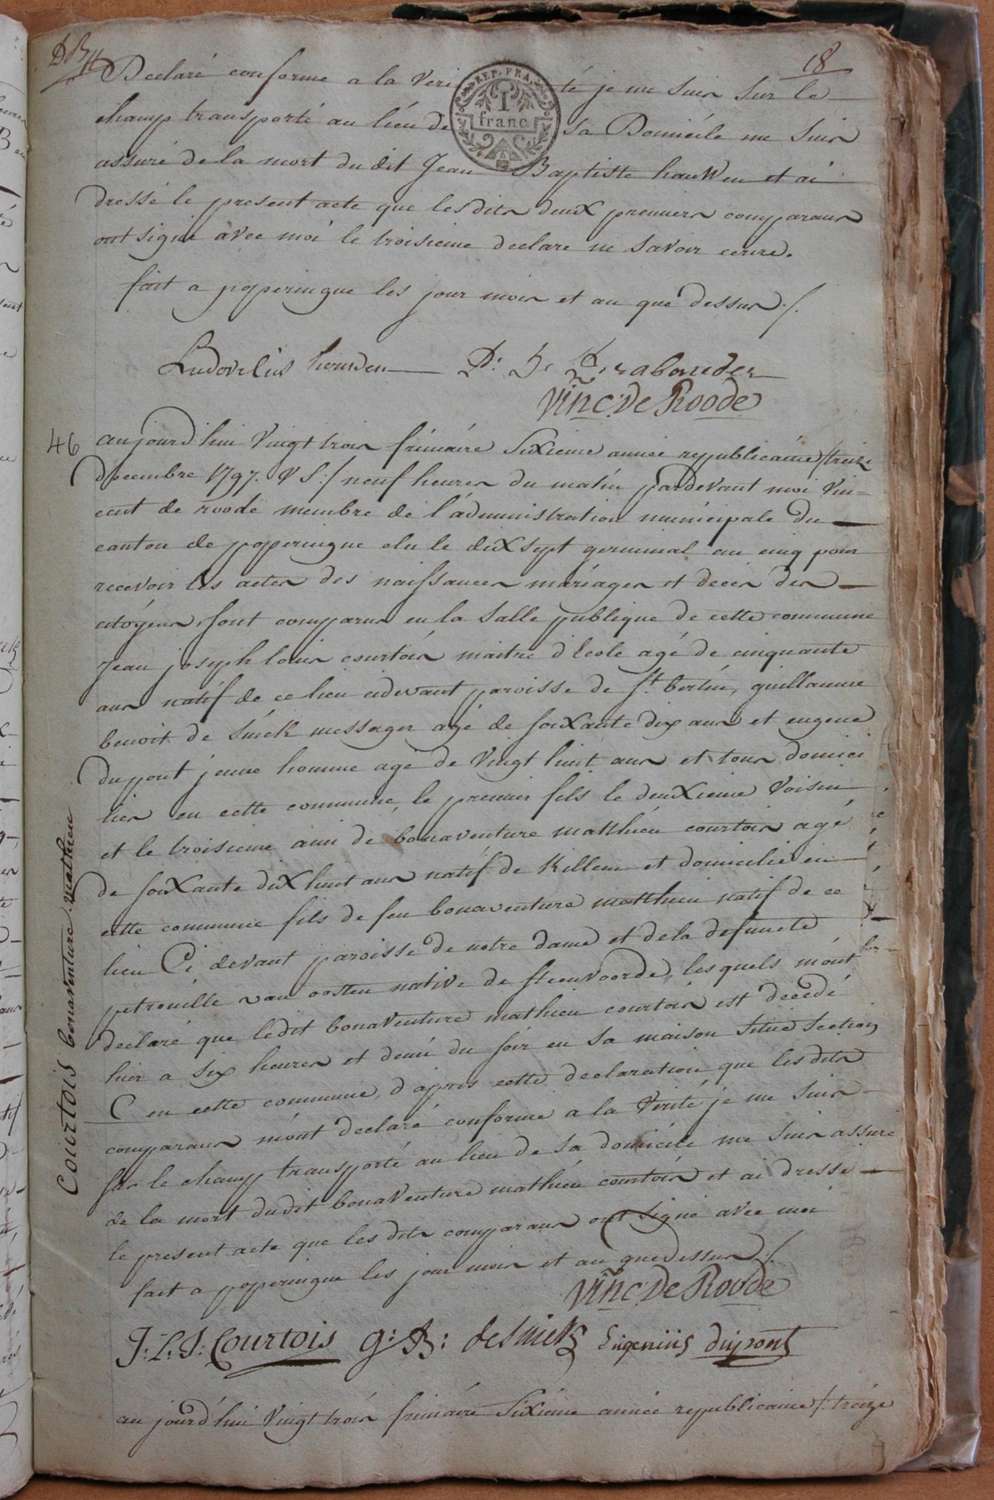 18
Declaré conforme a la verité je me suis sur le
REP. FRA.
1
franc
champ transporté au lieu de sa Domicile me suis
assuré de la mort du dit Jean Baptiste hauwen et ai
dressé le present acte que lesdits deux premiers comparans
ont signé avec moi le troisieme declare ne savoir ecrire.
fait a poperingue les jour mois et an que dessus /.
Vinc: De Roode
46
aujourd'hui vingt trois frimaire sixieme année republicaine /: treize
Decembre 1797. V S:/ neuf heures du matin pardevant moi vin-
cent de roode membre de l'administration municipale du
canton de poperingue elu le dix sept germinal an cinq pour
recevoir les actes des naissances mariages et decès des
citoyens, sont comparus en la salle publique de cette commune
jean joseph louis courtois maitre d'Ecole agé de cinquante
ans natif de ce lieu cidevant paroisse de St. bertin, guillaume
benoit de smick messager agé de soixante dix ans et eugene
dupont jeune homme agé de vingt huit ans et tous domici
liés en cette commune, le premier fils le deuxieme voisin
et le troisieme ami de bonaventure matthieu courtois agé
de soixante dix huit ans natif de Killem et domicilié en
cette commune fils de feu bonaventure matthieu natif de ce
lieu Ci devant paroisse de notre dame et de la defuncte
petronille van oosten native de steenvoorde, lesquels m'ont
declaré que ledit bonaventure mathieu courtois est decedé
hier a six heures et demie du soir en sa maison située section
C en cette commune, d'après cette declaration que lesdits
comparans m'ont declaré conforme a la verité je me suis
sur le champ transporté au lieu de sa domicile me suis assuré
de la mort dudit bonaventure mathieu courtois et ai dressé
le present acte que les dits comparans ont signé avec moi
fait a poperingue les jour mois et an que dessus /.
Vinc: De Roode
J: L: J: Courtois g: B: desmick Eugenius dupont
Courtois bonaventure mathieu
aujourd'hui vingt trois frimaire sixieme année republicaine /: treize